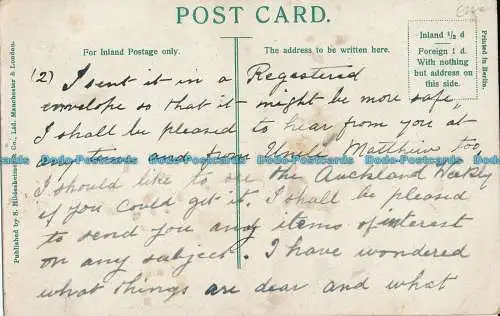 POST CARD.
For Inland Postage only.
The address to be written here.
Inland ½ d
Foreign 1 d.
With nothing
but address on
this side.
Printed in Berlin.
Published by S. Hildesheimer & Co., Ltd. Manchester & London.
(2) I sent it in a Registered
envelope so that it might be more safe,
I shall be pleased to hear from you at
any time and from Uncle Matthew too,
Dodo-Postcards Dodo-Postcards Dodo-Postcards Dodo-Postcards Dodo-Postcards
I should like to see the Auckland Weekly
if you could get it. I shall be pleased
to send you any items of interest
on any subject. I have wondered
what things are dear and what